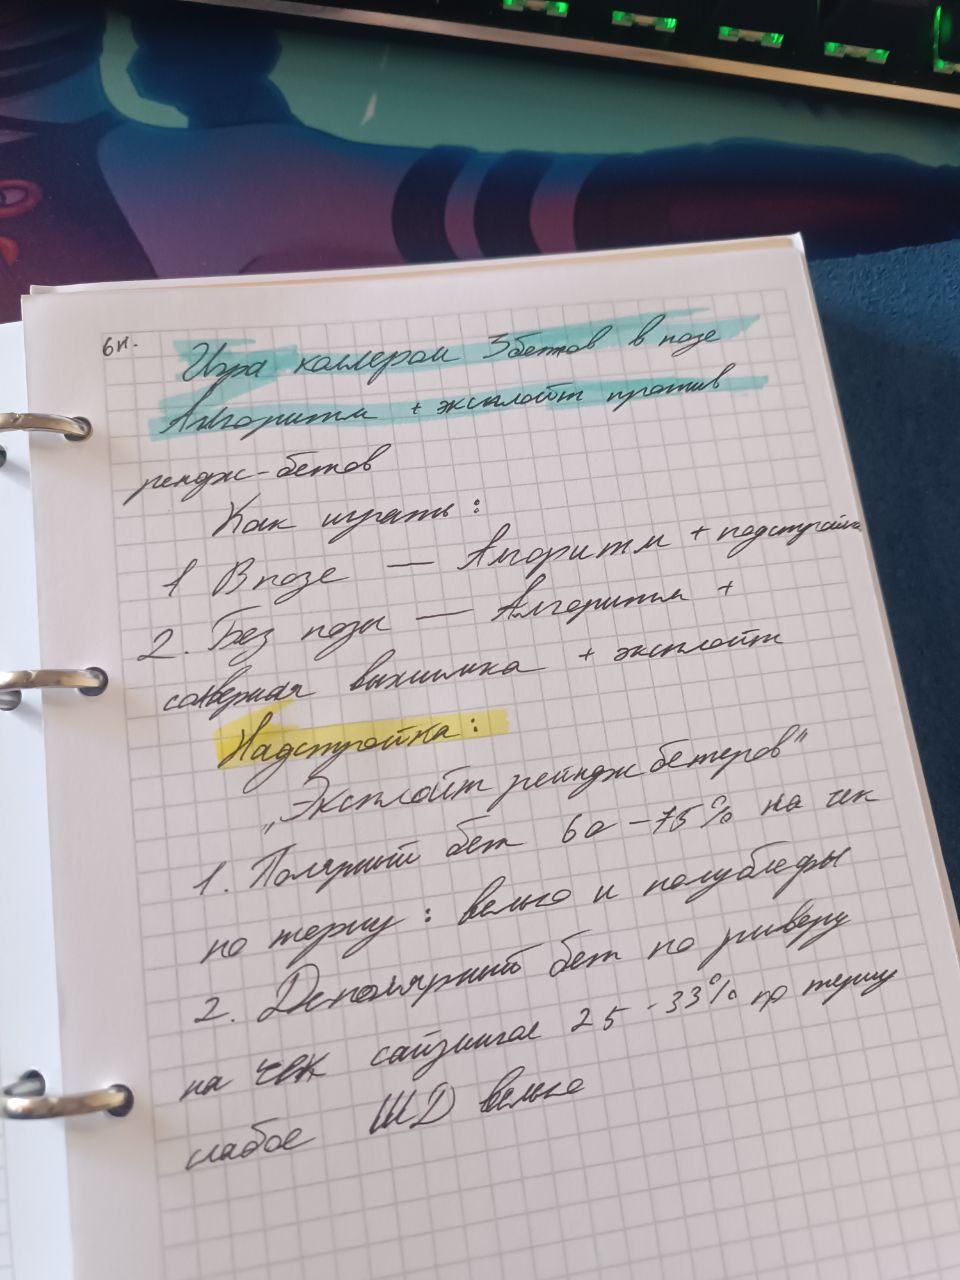 6н.
Игра коллером 3бетов в позе
Алгоритм + эксплойт против
рендж-бетов
Как играть:
1 В позе — Алгоритм + надстройка
2. Без позы — Алгоритм +
солверная выжимка + эксплойт
Надстройка:
„Эксплойт рейндж бетеров"
1. Полярный бет 60-75% на чек
по терну: велью и полублефы
2. Деполярный бет по риверу
на чек сайзингом 25-33% пр терну
слабое ШД велью